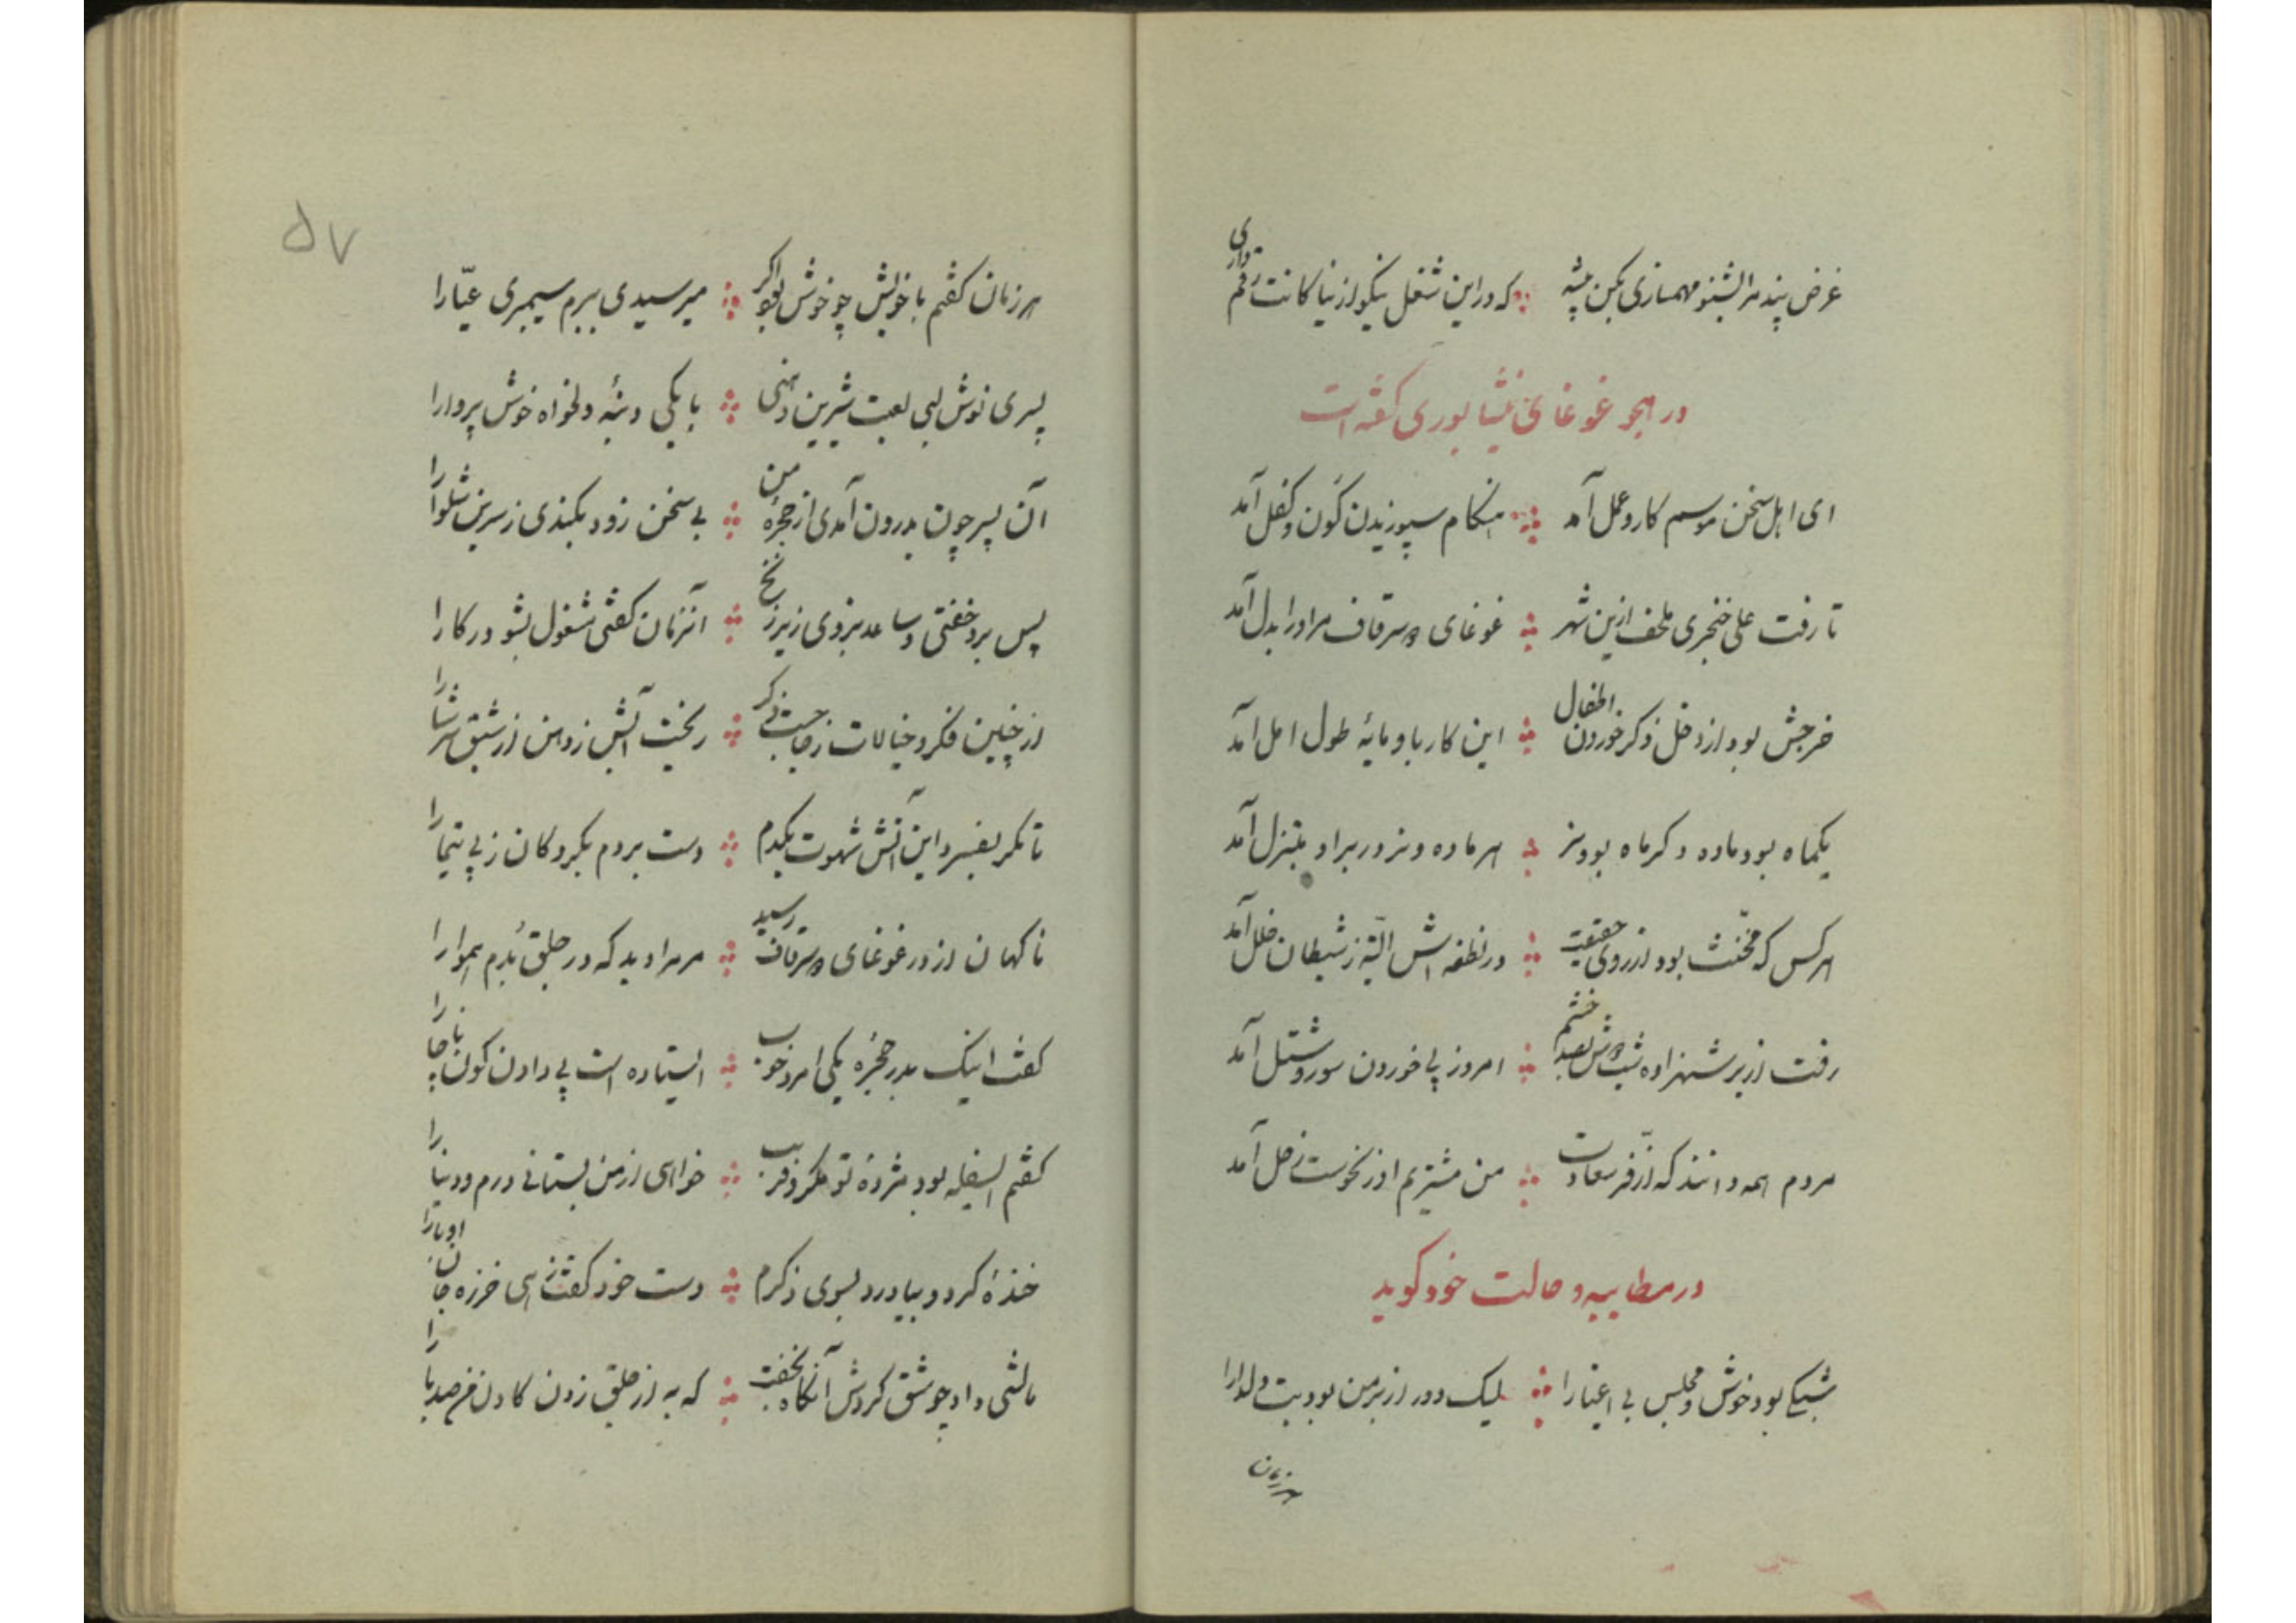 غرض پند مرا بشنو مهمسازی بکن پیشه که در این شغل نیکو از نیاکانت رقم داری
در هجو غوغای نیشابوری گفته است
ای اهل سخن موسم کار و عمل آمد هنگام سپوزیدن کون و کفل آمد
تا رفت علی خنجری ملحف ازین شهر غوغای قرمساق مر او را بدل آمد
خرجش بود از دخل ذکر خوردن اطفال این کار باو مایهٔ طول امل آمد
یکماه بود ماده دگر ماه بود نر هر ماده و نر در بر او مبتزل آمد
هر کس که مخنث بود از روی حقیقت در نطفه اش البته ز شیطان خلل آمد
رفت از بر شهزاده بصد خشم امروز پی خوردن سور و شتل آمد
مردم همه دانند که از فر سعادت من مشتریم او ز نحوست زحل آمد
در مطایبه و حالت خود گوید
شبکی بود خوش و مجلس بی اغیارا لیک دور از بر من بود بت دلدارا
هر زمان
۵۷
هر زمان گفتم با خویش چو خوش بود اگر میرسیدی ببرم سیمبری عیّارا
پسری نوش لبی لعبت شیرین دهنی با یکی دنبه دلخواه خوش پروارا
آن پسر چون بدرون آمدی از حجرهٔ من بی سخن زود بکندی ز سرین شلوارا
پس برو خفتی و ساعد بزدی زیر زنخ آنزمان گفتی مشغول بشو در کارا
از چنین فکر و خیالات ز جا جست ذکر ریخت آتش ز دهن از شبق سرشارا
تا مگر بفسرد این آتش شهوت یکدم دست بردم بگرو کان ز پی تیمارا
ناگهان از در غوغای قرمساق رسید مر مرا دید که در جلق بدم هموارا
گفت اینک بدر حجره یکی امرد خوب ایستاده است پی دادن کون ناچارا
گفتم ای سفله بود مژدهٔ تو مکر و فریب خواهی از من بستانی درم و دینارا
خندهٔ کرد و بیاورد بسوی ذکرم دست خود گفت زهی خرزه جان اوبارا
مالشی داد چو شق کردش آنگاه بخفت که به از جلق زدن گادن من صد بارا